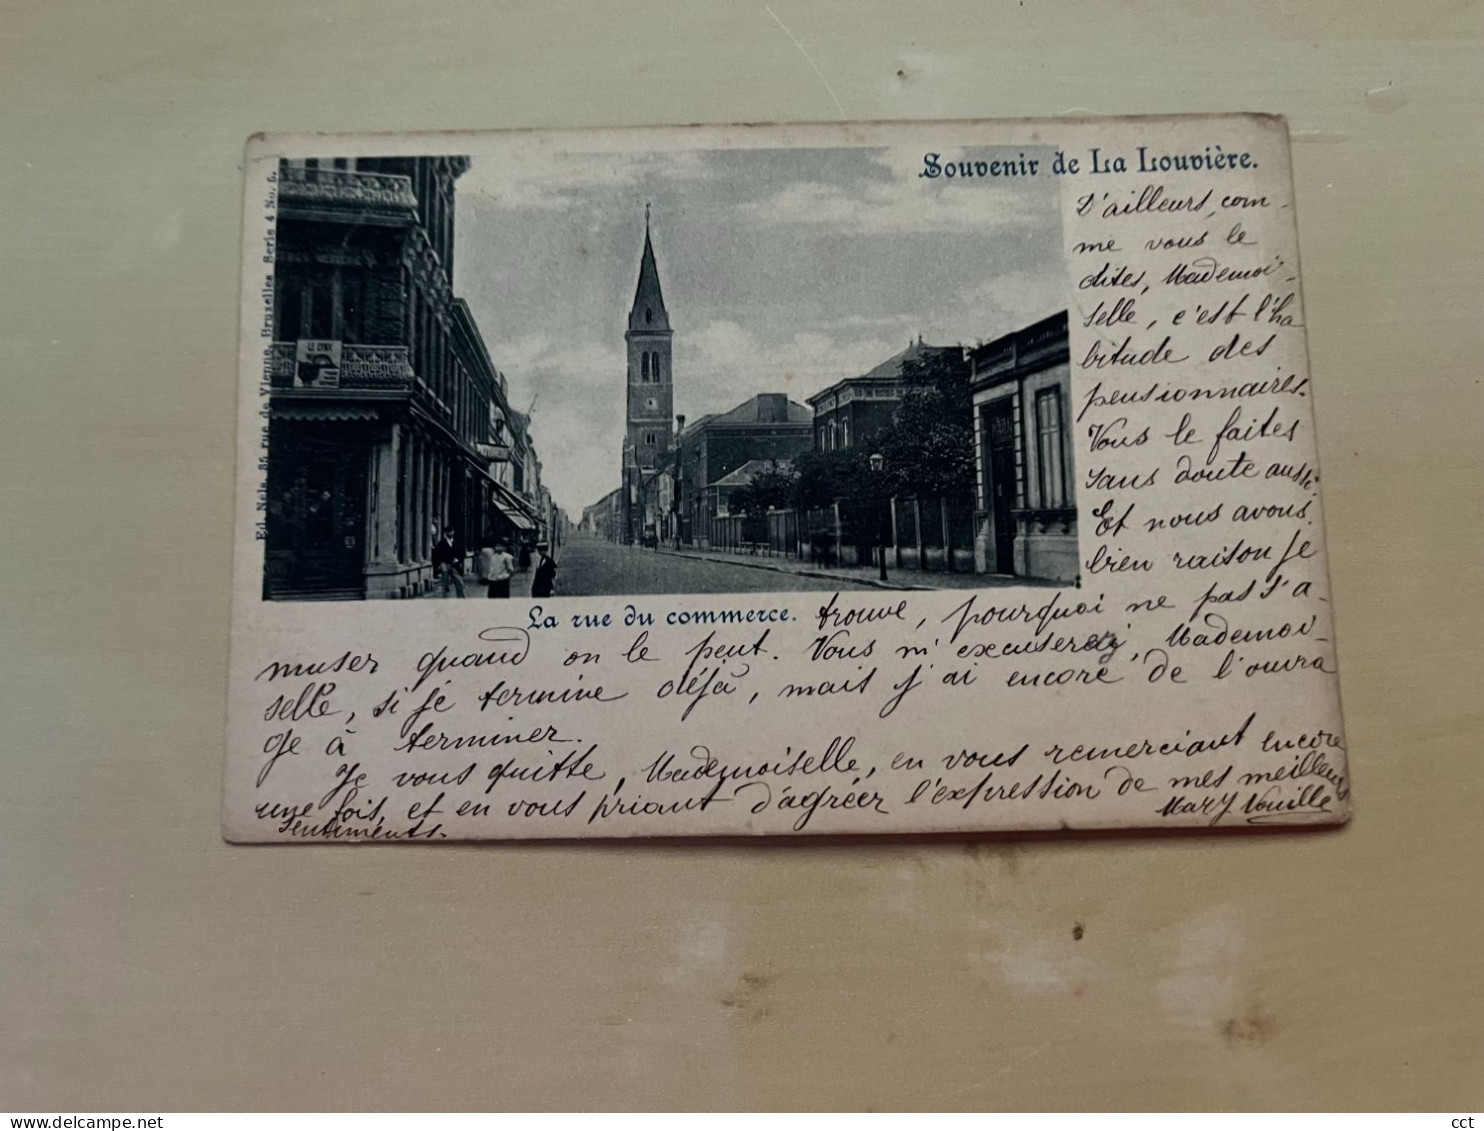 Souvenir de La Louvière.
Ed. Nels, 86 rue de Vienne, Bruxelles Serie 4 No. 6.
LE LYNX
D'ailleurs, com-
me vous le
dites, Mademoi-
selle, c'est l'ha
bitude des
pensionnaires.
Vous le faites
sans doute aussi
Et nous avons
bien raison je
La rue du commerce.
trouve, pourquoi ne pas s'a-
muser quand on le peut. Vous m'excuserez, Mademoi-
selle, si je termine déjà, mais j'ai encore de l'ouvra
ge à terminer.
Je vous quitte, Mademoiselle, en vous remerciant encore
une fois, et en vous priant d'agréer l'expression de mes meilleurs
sentiments.
Mary
cct